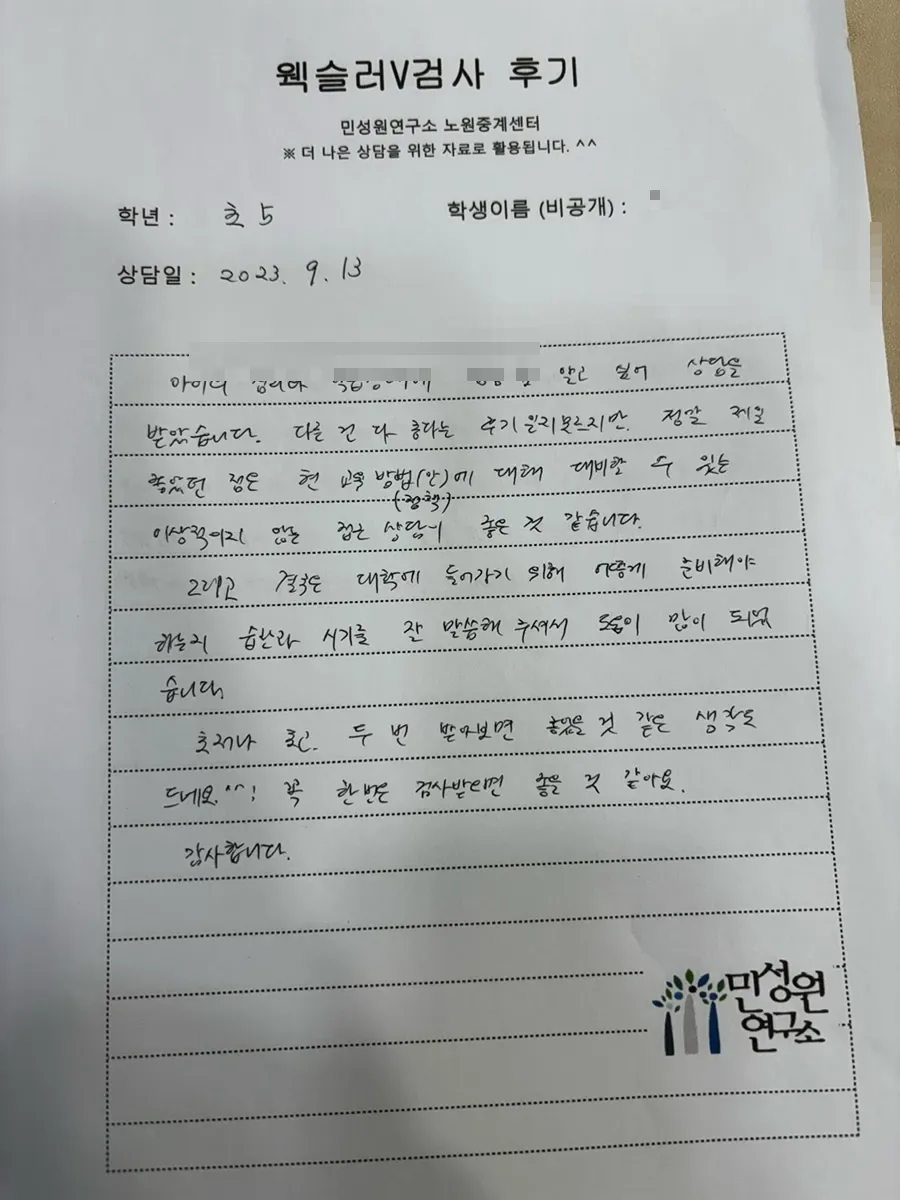 웩슬러V검사 후기
민성원연구소 노원중계센터
※ 더 나은 상담을 위한 자료로 활용됩니다. ^^
학년 : 초 5
학생이름 (비공개) :
상담일 : 2023. 9. 13
알고 싶어 상담을
받았습니다. 다른 건 다 좋다는 후기일지모르지만. 정말 제일
좋았던 점은 현 교육 방법(안)에 대해 대비할 수 있는
(정책)
이상적이지 않은 접근 상담이 좋은 것 같습니다.
그리고 결국은 대학에 들어가기 위해 어떻게 준비해야
하는지 습관과 시기를 잘 말씀해 주셔서 도움이 많이 되었
습니다.
초저나 초고. 두 번 받아보면 좋았을 것 같은 생각도
드네요.^^! 꼭 한번은 검사받으면 좋을 것 같아요.
감사합니다.
민성원
연구소